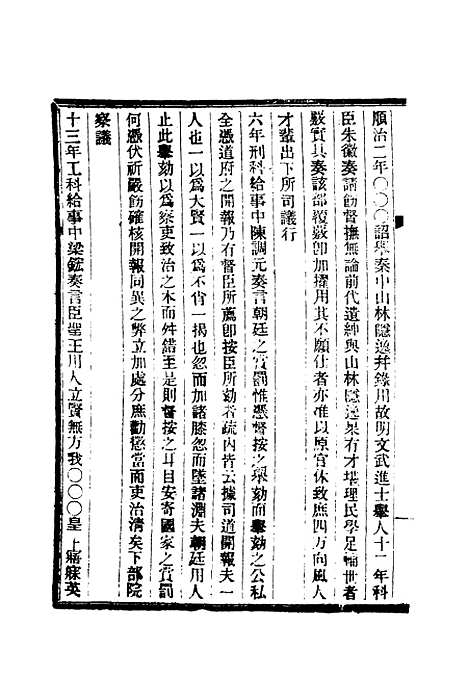 順治二年〇〇〇詔舉秦中山林隱逸幷錄用故明文武進士舉人十一年科
臣朱徽奏請飭督撫無論前代遺紳與山林隱逸果有才堪理民學足輔世者
嚴實具奏該部覆覈卽加擢用其不願仕者亦准以原官休致庶四方向風人
才輩出下所司議行
六年刑科給事中陳調元奏言朝廷之賞罰惟憑督按之舉劾而舉劾之公私
全憑道府之開報乃有督臣所薦卽按臣所劾者疏內皆云據司道開報夫一
人也一以爲大賢一以爲不肖一揭也忽而加諸膝忽而墜諸淵夫朝廷用人
止此舉劾以爲察吏致治之本而舛錯至是則督按之耳目安寄國家之賞罰
何憑伏祈嚴飭確核開報同異之弊立加處分庶勸懲當而吏治淸矣下部院
察議
十三年工科給事中梁鋐奏言臣聖王用人立賢無方我〇〇〇皇上寤寐英